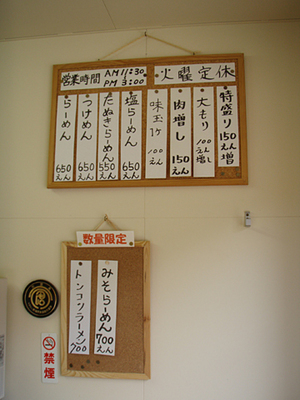 営業時間 AM 11:30
PM 3:00
火曜定休
特盛り 150えん増
大もり 100えん増し
肉増し 150えん
味玉1ケ 100えん
塩らーめん 650えん
たぬきらーめん 550えん
つけめん 650えん
らーめん 650えん
数量限定
みそらーめん 700えん
トンコツラーメン 700
禁煙